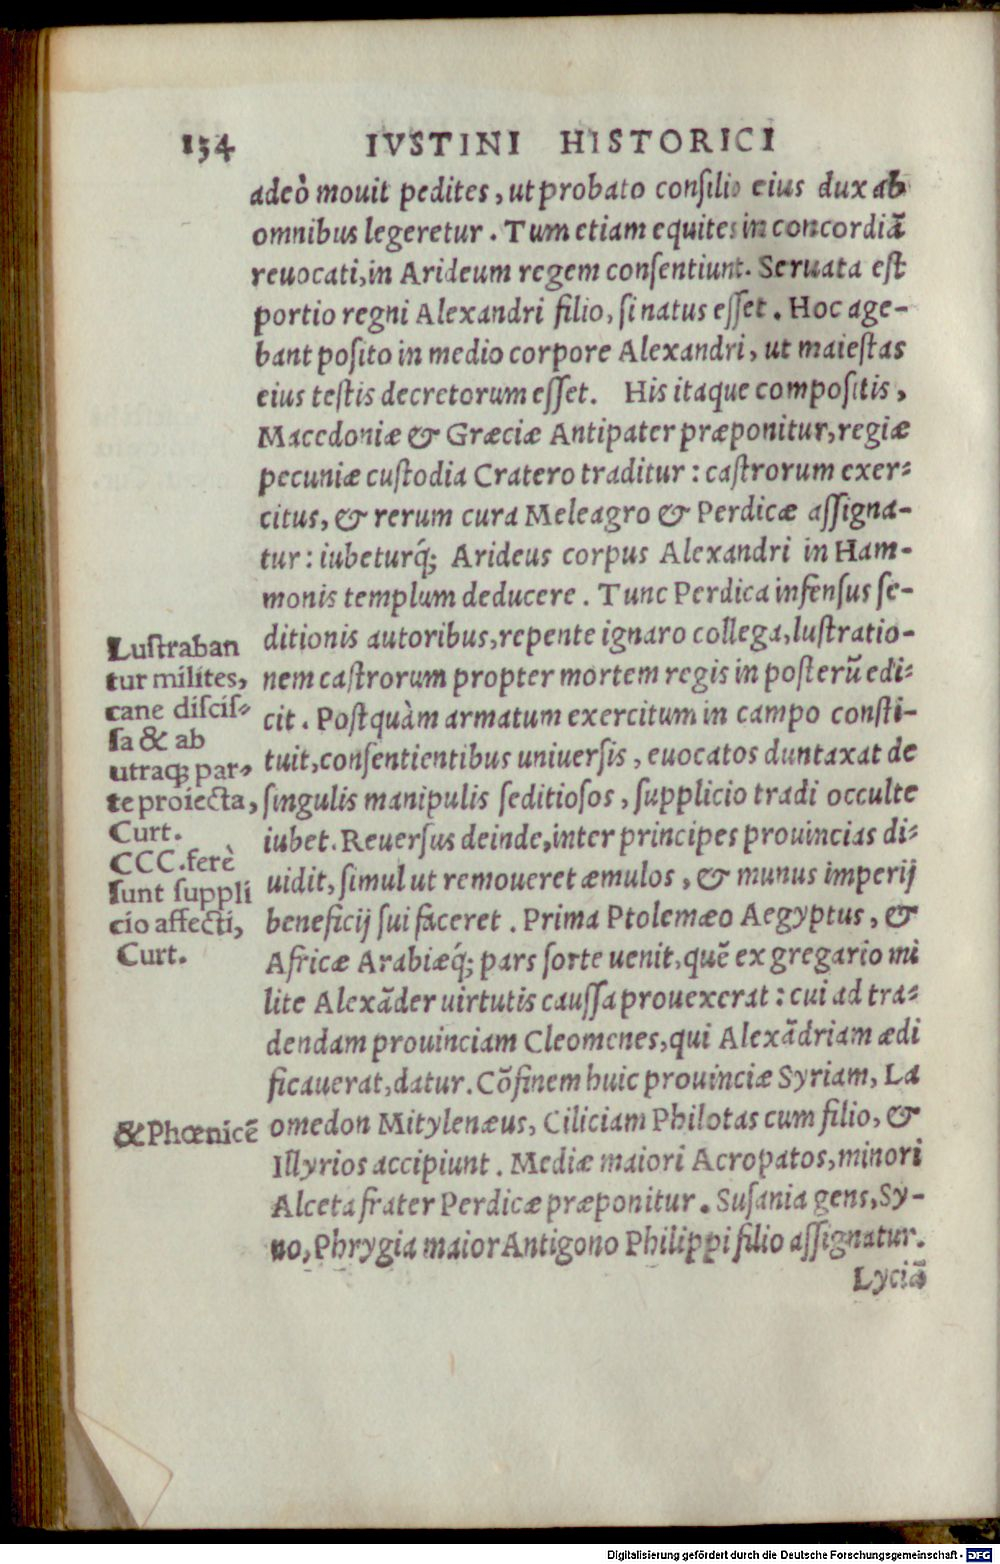 154 IVSTINI HISTORICI
adeò mouit pedites, ut probato consilio eius dux ab
omnibus legeretur. Tum etiam equites in concordiã
reuocati, in Arideum regem consentiunt. Seruata est
portio regni Alexandri filio, si natus esset. Hoc age-
bant posito in medio corpore Alexandri, ut maiestas
eius testis decretorum esset. His itaque compositis,
Macedoniæ & Græciæ Antipater præponitur, regiæ
pecuniæ custodia Cratero traditur: castrorum exer-
citus, & rerum cura Meleagro & Perdicæ assigna-
tur: iubeturq́; Arideus corpus Alexandri in Ham-
monis templum deducere. Tunc Perdica infensus se-
ditionis autoribus, repente ignaro collega, lustratio-
nem castrorum propter mortem regis in posterũ edi-
cit. Postquàm armatum exercitum in campo consti-
tuit, consentientibus uniuersis, euocatos duntaxat de
singulis manipulis seditiosos, supplicio tradi occulte
iubet. Reuersus deinde, inter principes prouincias di-
uidit, simul ut remoueret æmulos, & munus imperij
beneficij sui faceret. Prima Ptolemæo Aegyptus, &
Africæ Arabiæq́; pars sorte uenit, quẽ ex gregario mi
lite Alexãder uirtutis caussa prouexerat: cui ad tra-
dendam prouinciam Cleomenes, qui Alexãdriam ædi
ficauerat, datur. Cõfinem huic prouinciæ Syriam, La
omedon Mitylenæus, Ciliciam Philotas cum filio, &
Illyrios accipiunt. Mediæ maiori Acropatos, minori
Alceta frater Perdicæ præponitur. Susania gens, Sy-
no, Phrygia maior Antigono Philippi filio assignatur.
Lyciã
Lustraban
tur milites,
cane discis-
sa & ab
utraq; par-
te proiecta,
Curt.
CCC. ferè
sunt suppli
cio affecti,
Curt.
& Phœnicẽ
Digitalisierung gefördert durch die Deutsche Forschungsgemeinschaft - DFG